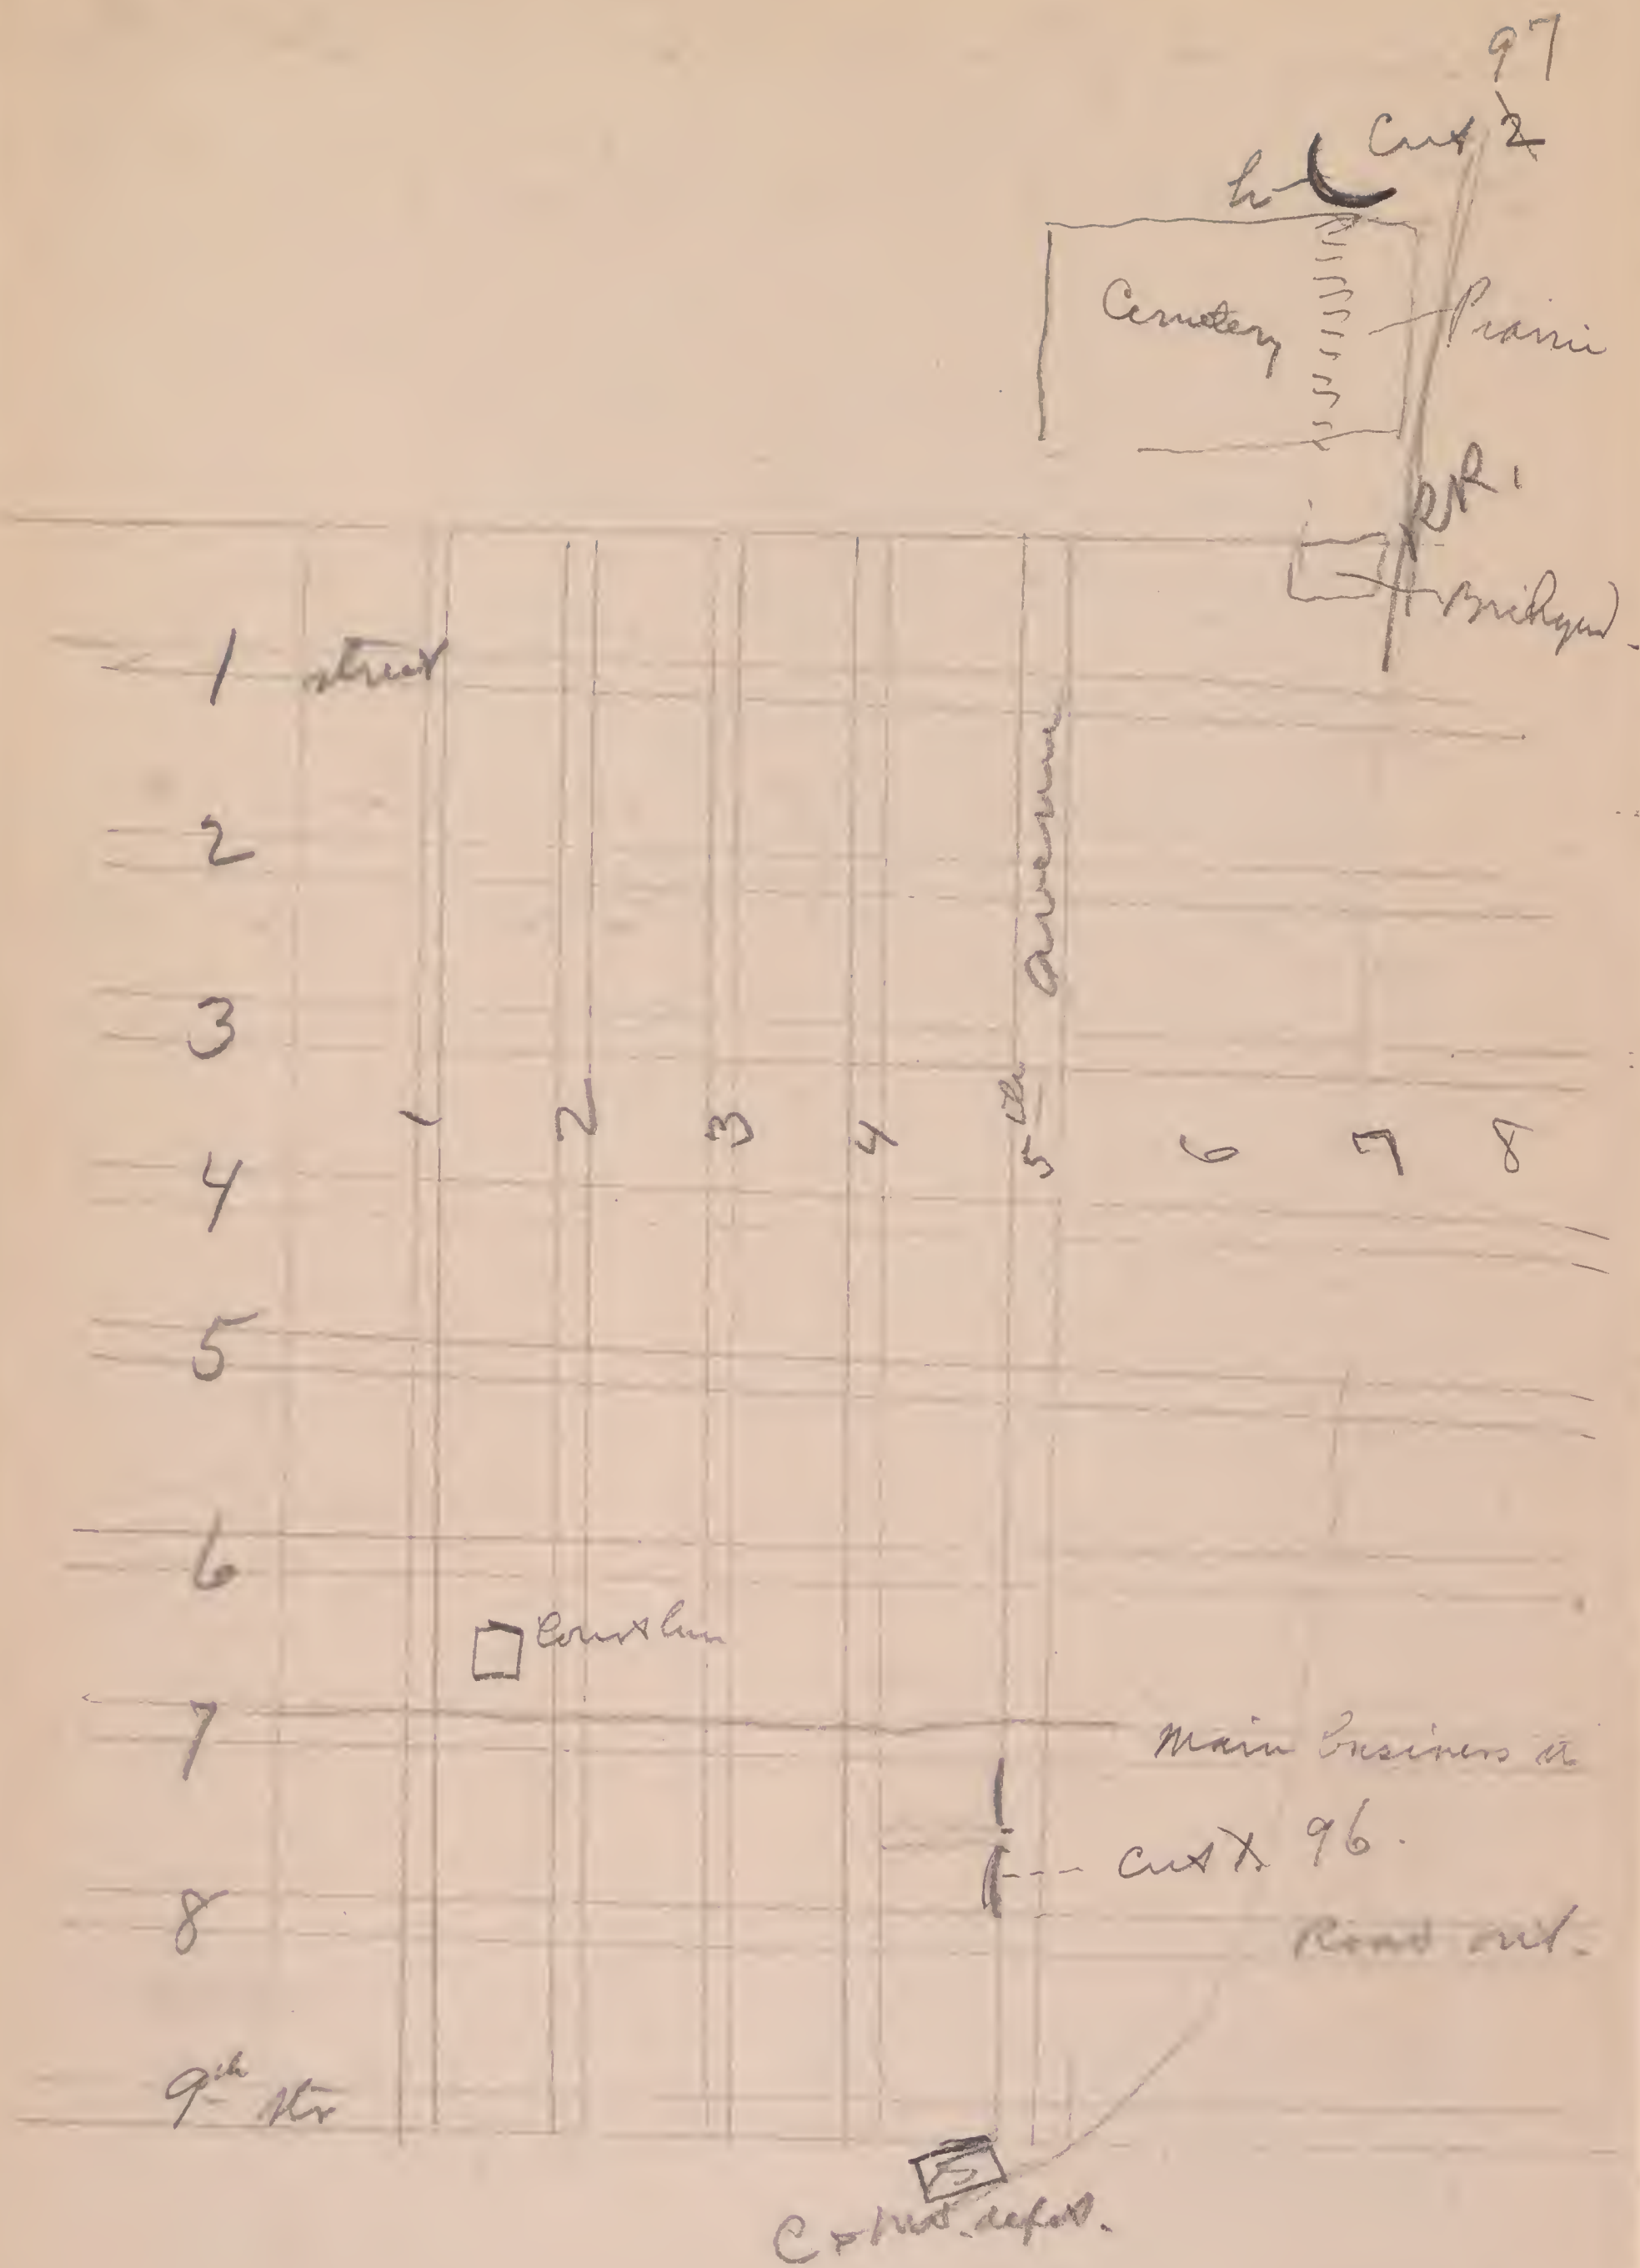 97
Cut 2
h
Cemetery
Prairie
R.R.
Brickyard.
1 street
2
3
4
5
6
7
8
9th str
1 2 3 4 5th avenue 6 7 8
Court house
Main business st
Cut 96.
Road out.
C + NW. depot.